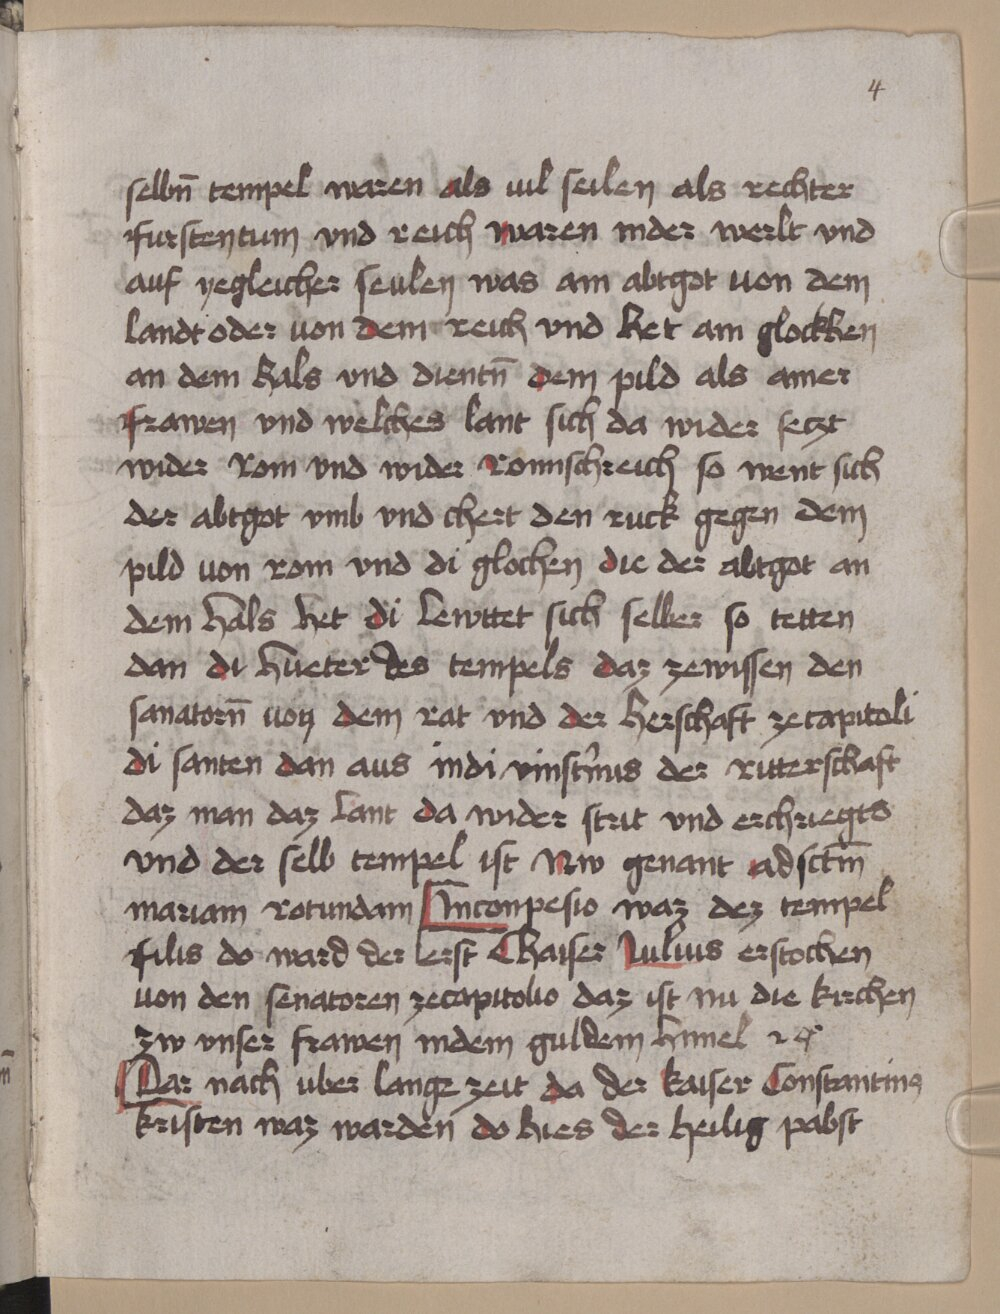 4
selbn̄ tempel waren als uil seilen als rechter
furstentum vnd reich waren inder werlt vnd
auf yegleicher seulen was ain abtgot uon dem
landt oder uon dem reich vnd het ain glockhen
an dem hals vnd dientn̄ dem pild als ainer
frawen vnd welches lant sich da wider seczt
wider Rom vnd wider Romischreich so went sich
der abtgot vmb vnd chert den ruck gegen dem
pild uon rom vnd di glochen die der abtgot an
dem hals het di lewttet sich selber so tetten
dan di hueter des tempels daz zewissen den
sanatorn̄ uon dem rat vnd der herschaft zecapitoli
di santen dan aus indi der ritterschaft
daz man daz lant da wider strit vnd erchriegts
vnd der selb tempel ist Nw genant ad sctm̄
mariam rotundam Inconpesio waz dez tempel
filis do ward der erst Chaiser Julius erstochen
uon den senatoren zecapitolio daz ist nu die kirchen
zw unser frawen indem guldem himel
Dar nach uber lange zeit da der kaiser Constantinus
kristen waz warden do hies der heilig pabst